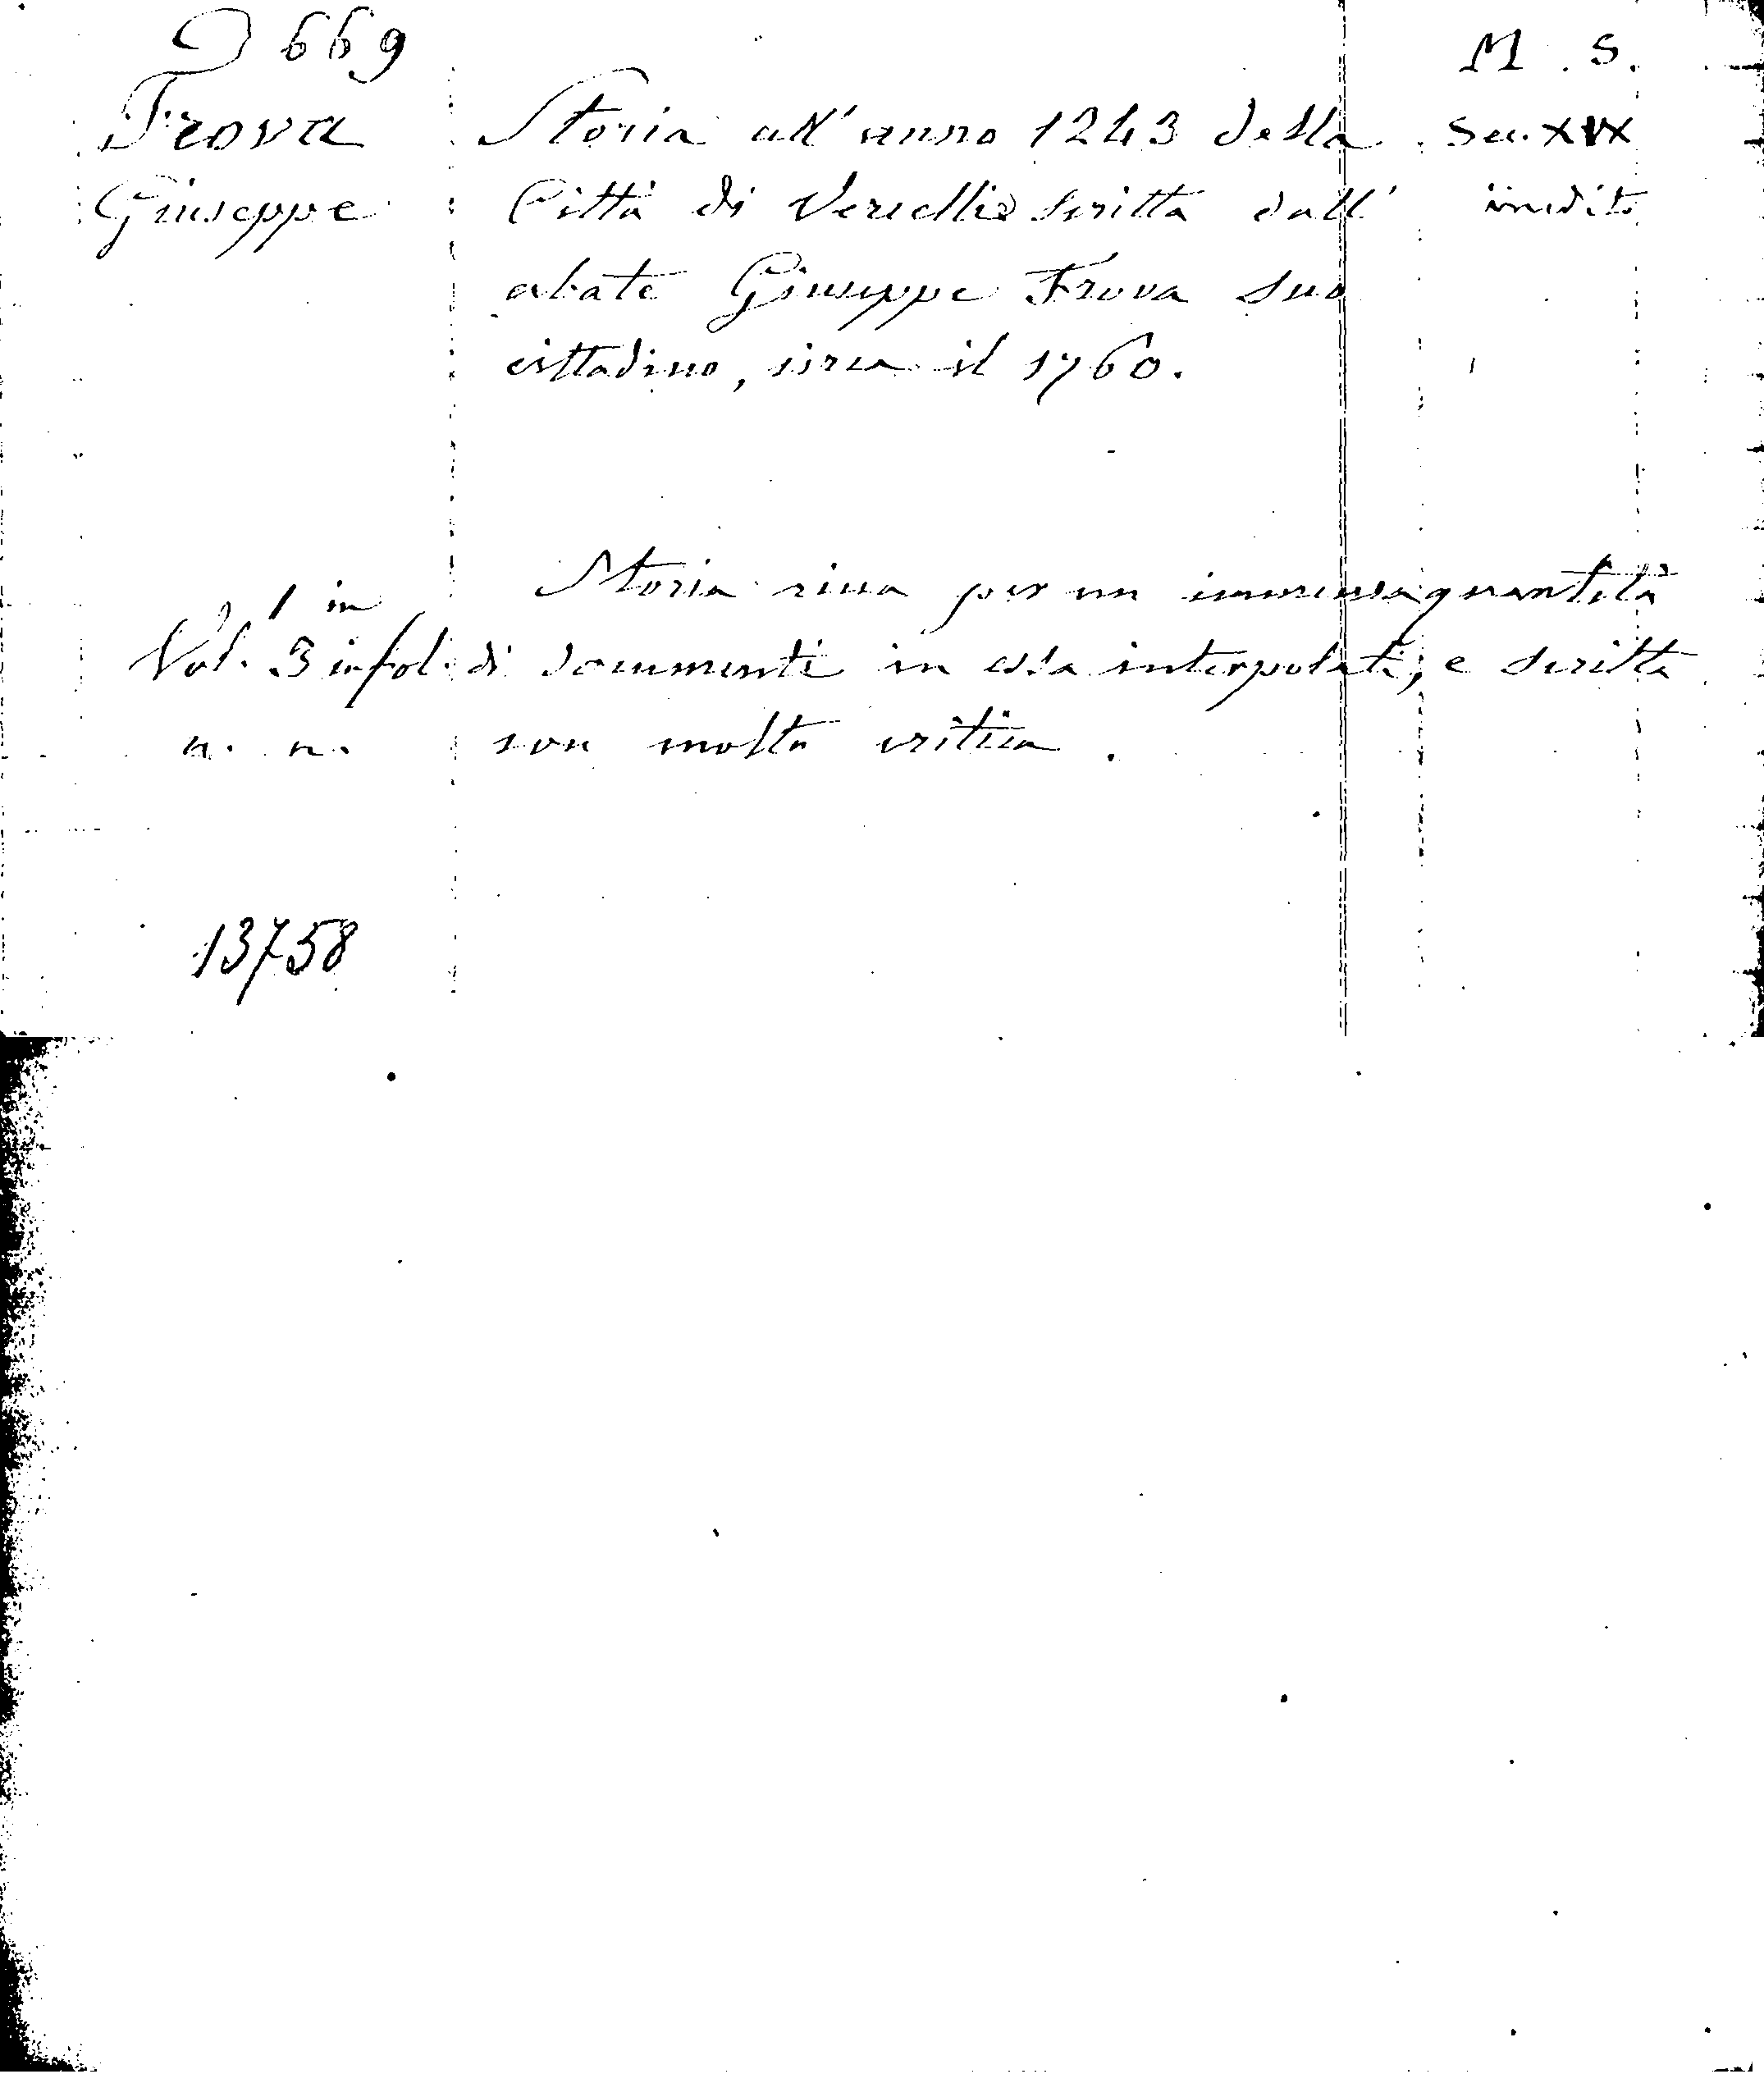 669
M. S.
Frova Storia all'anno 1243 della Sec. XIX
Giuseppe Città di Vercelli scritta dall' inedito
abate Giuseppe Frova suo
cittadino, circa il 1760.
1 in Storia ricca per un immensa quantità
Vol. 3 in fol. di documenti in essa interpolati, e scritta
n. n. con molta critica.
13758